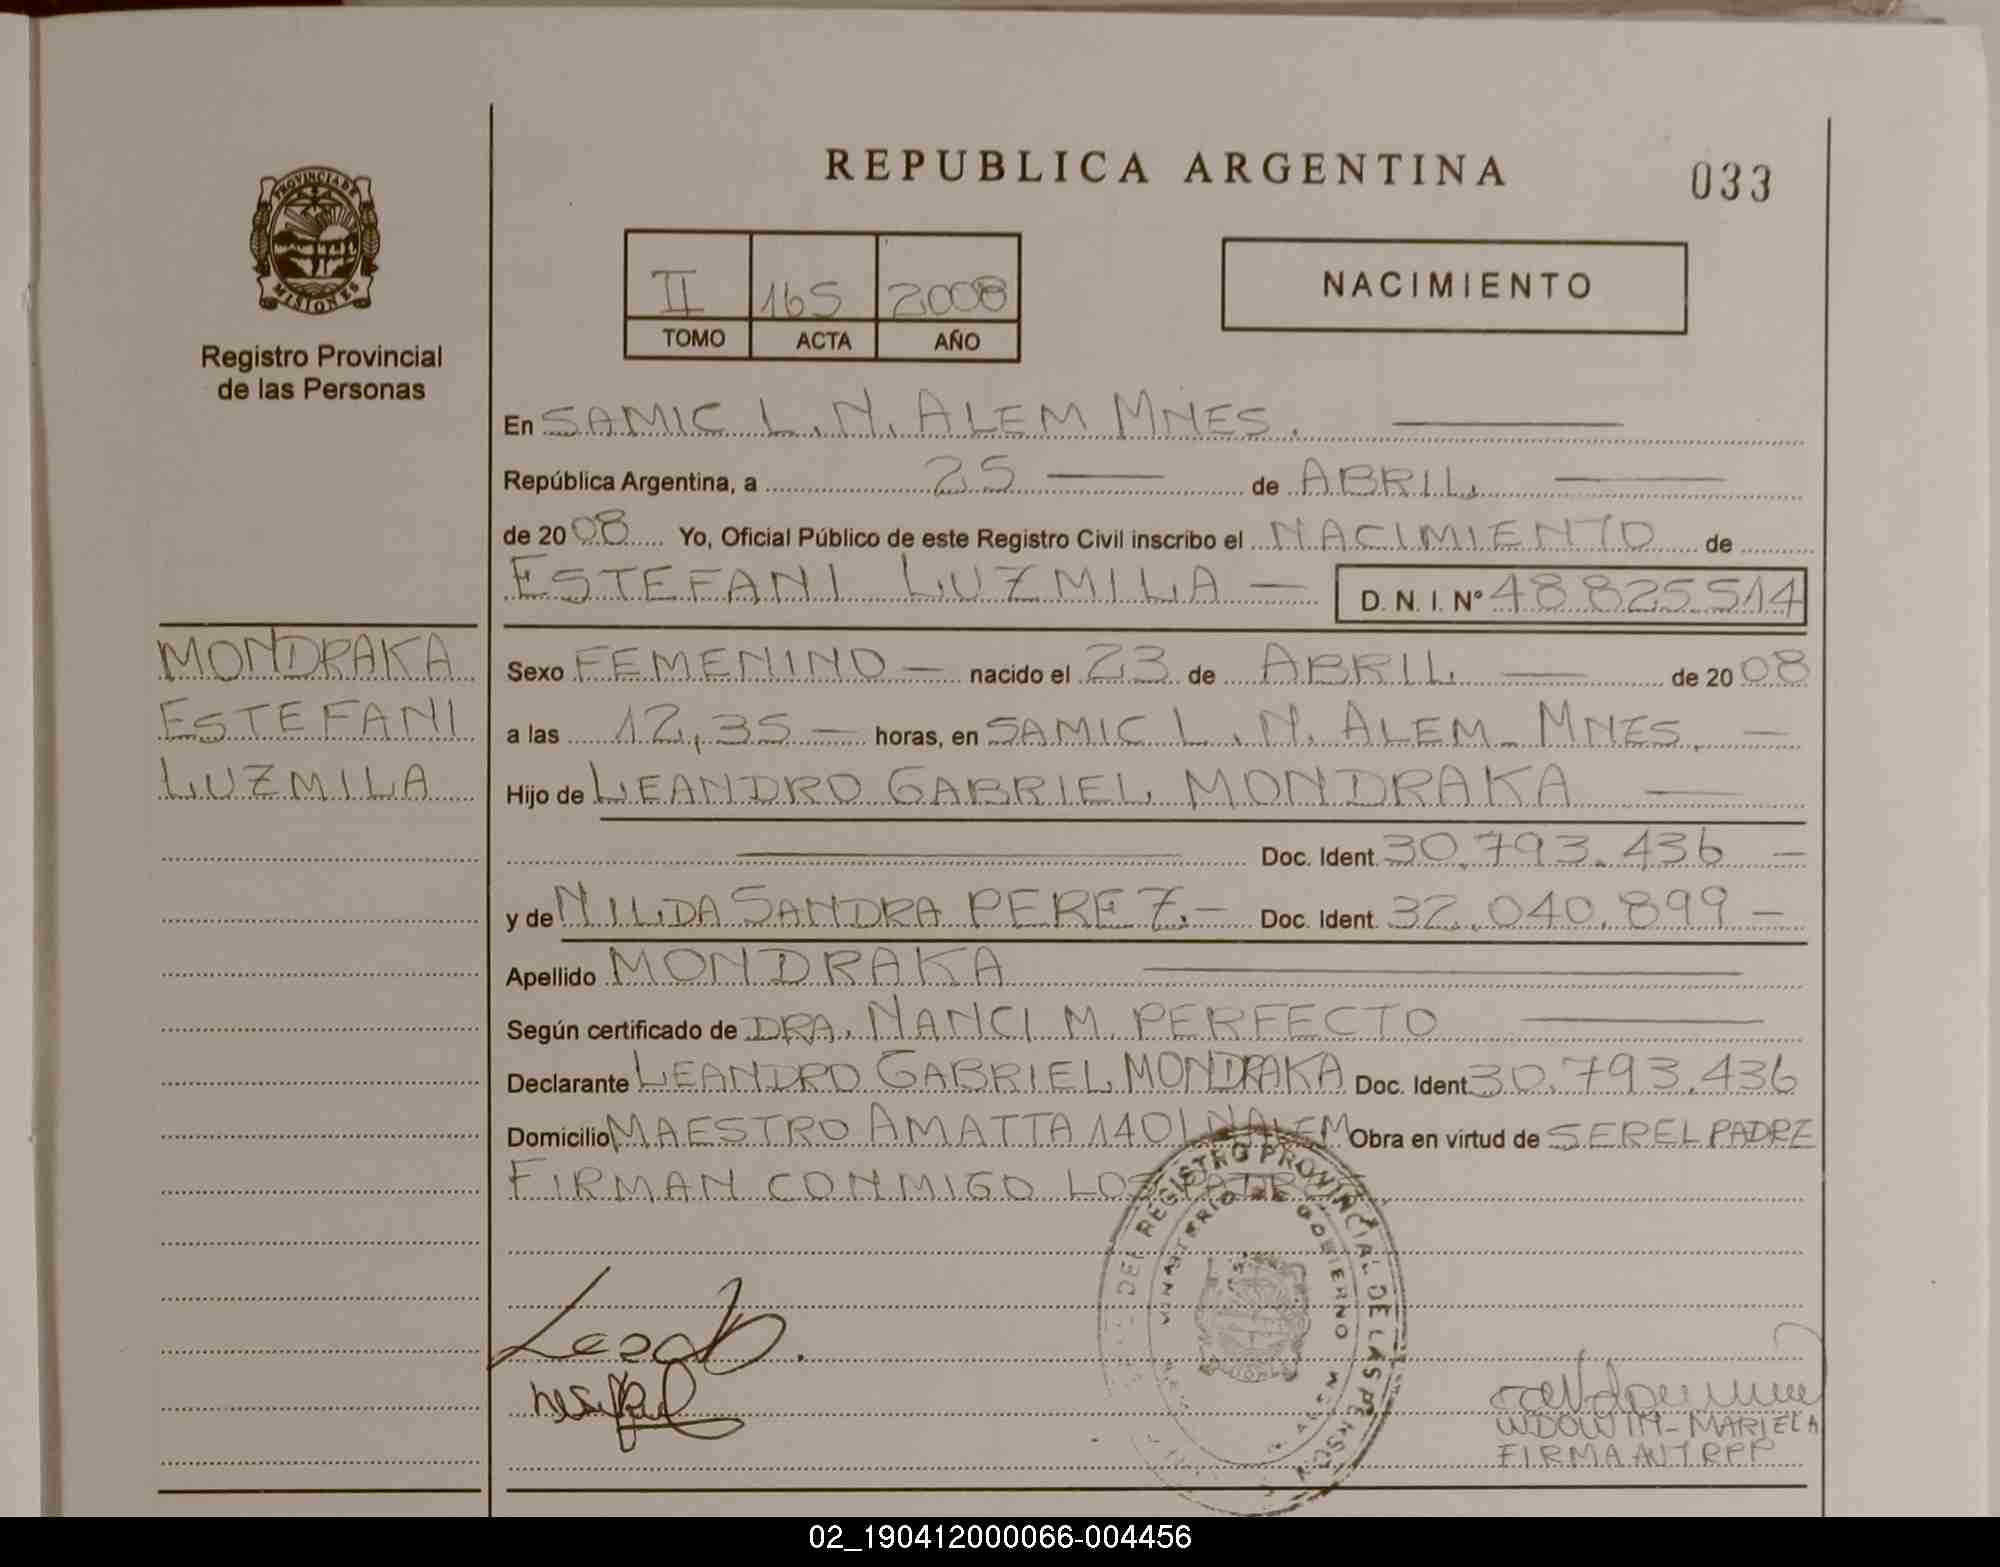 REPUBLICA ARGENTINA
033
PROVINCIA DE
MISIONES
Registro Provincial
de las Personas
II 165 2008
TOMO ACTA AÑO
NACIMIENTO
En SAMIC L. N. ALEM MNES.
República Argentina, a 25 de ABRIL
de 2008 Yo, Oficial Público de este Registro Civil inscribo el NACIMIENTO de
ESTEFANI LUZMILA D. N. I. N° 48825514
MONDRAKA
ESTEFANI
LUZMILA
Sexo FEMENINO nacido el 23 de ABRIL de 2008
a las 12,35 horas, en SAMIC L. N. ALEM - MNES.
Hijo de LEANDRO GABRIEL MONDRAKA
Doc. Ident. 30.793.436
y de NILDA SANDRA PEREZ.- Doc. Ident. 32.040.899
Apellido MONDRAKA
Según certificado de DRA. NANCI M. PERFECTO
Declarante LEANDRO GABRIEL MONDRAKA Doc. Ident. 30.793.436
Domicilio MAESTRO AMATTA 140 L N ALEM Obra en virtud de SER EL PADRE
FIRMAN CONMIGO LOS PADRES.
DEL REGISTRO PROVINCIAL DE LAS PERSONAS
MINISTERIO DE GOBIERNO
MARIELA
FIRMA AUT RPP
02_190412000066-004456